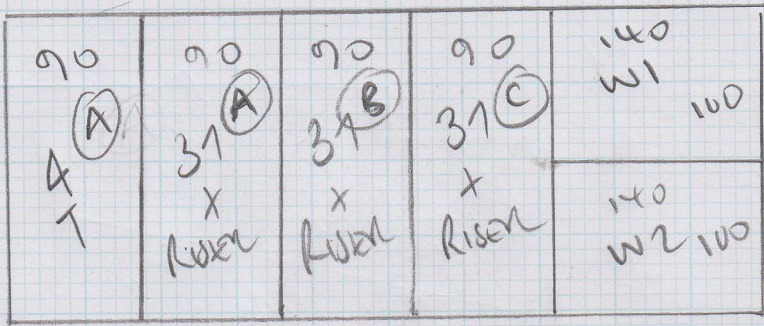 90
A
4
T
90
A
31
X
RISER
90
B
31
X
RISER
90
C
31
X
RISER
140
W1
100
140
W2 100